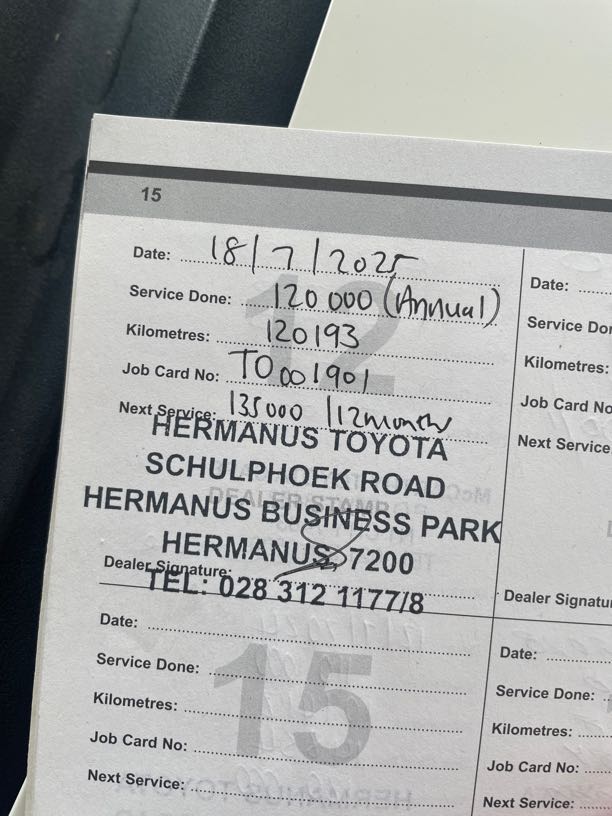 15
12
Date: 18/7/2025
Service Done: 120 000 (Annual)
Kilometres: 120193
Job Card No: TO001901
Next Service: 135000 / 12 months
HERMANUS TOYOTA
SCHULPHOEK ROAD
DEALER STAMP
HERMANUS BUSINESS PARK
HERMANUS, 7200
Dealer Signature:
TEL: 028 312 1177/8
15
Date:
Service Done:
Kilometres:
Job Card No:
Next Service:
Date:
Service Dor
Kilometres:
Job Card No
Next Service
Dealer Signatu
Date:
Service Done:
Kilometres:
Job Card No:
Next Service: